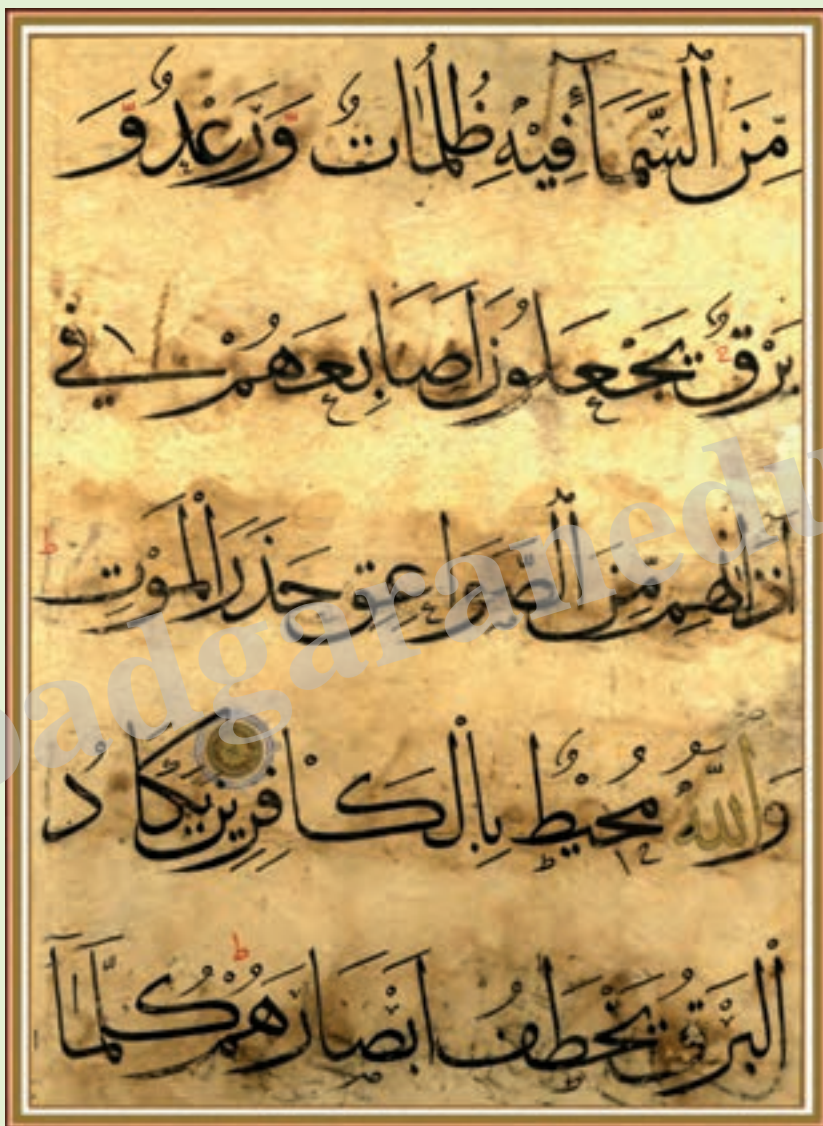 مِّنَ ٱلسَّمَآءِ فِيْهِ ظُلُمَاتٌ وَّرَعْدٌ وَّ
بَرْقٌ يَجْعَلُونَ اَصَابِعَهُمْ فِي
آذَانِهِم مِّنَ ٱلصَّوَاعِقِ حَذَرَ الْمَوْتِ ط
وَاللّٰهُ مُحِيْطٌ بِالْكَافِرِينَ يَكَادُ
الْبَرْقُ يَخْطَفُ اَبْصَارَهُمْ ط كُلَّمَآ